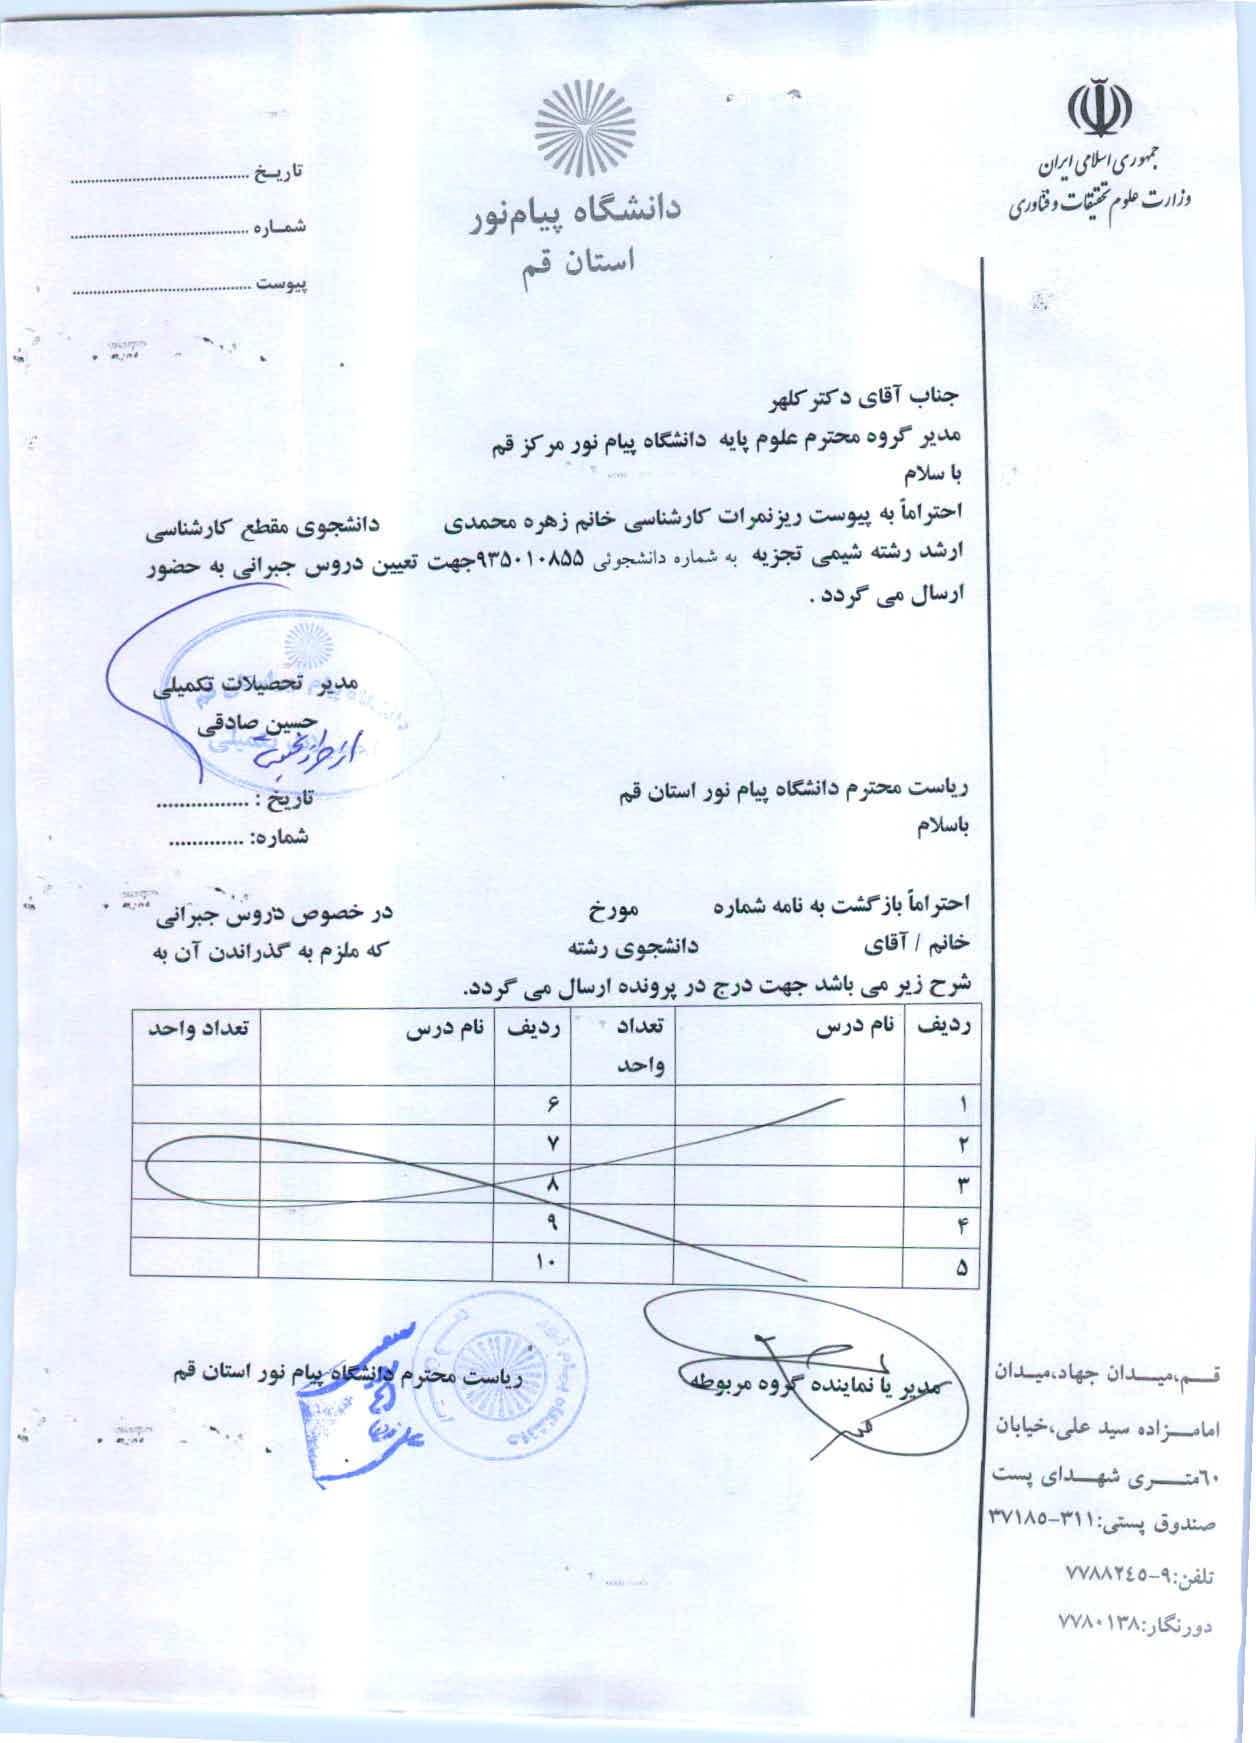 جمهوری اسلامی ایران
وزارت علوم تحقیقات و فناوری
دانشگاه پیام‌نور
استان قم
تاریخ ..........................................
شماره ..........................................
پیوست ..........................................
جناب آقای دکتر کلهر
مدیر گروه محترم علوم پایه دانشگاه پیام نور مرکز قم
با سلام
احتراماً به پیوست ریزنمرات کارشناسی خانم زهره محمدی دانشجوی مقطع کارشناسی
ارشد رشته شیمی تجزیه به شماره دانشجوئی ۹۳۵۰۱۰۸۵۵جهت تعیین دروس جبرانی به حضور
ارسال می گردد .
مدیر تحصیلات تکمیلی
حسین صادقی
تاریخ : ................
شماره: .............
ریاست محترم دانشگاه پیام نور استان قم
باسلام
احتراماً بازگشت به نامه شماره مورخ در خصوص دروس جبرانی
خانم / آقای دانشجوی رشته که ملزم به گذراندن آن به
شرح زیر می باشد جهت درج در پرونده ارسال می گردد.
ردیف نام درس تعداد واحد ردیف نام درس تعداد واحد
۱ ۶
۲ ۷
۳ ۸
۴ ۹
۵ ۱۰
مدیر یا نماینده گروه مربوطه
ریاست محترم دانشگاه پیام نور استان قم
قم،میدان جهاد،میدان
امامزاده سید علی،خیابان
٦٠متری شهدای پست
صندوق پستی:٣١١-٣٧١٨٥
تلفن:٩-٧٧٨٨٢٤٥
دورنگار:٧٧٨٠١٣٨